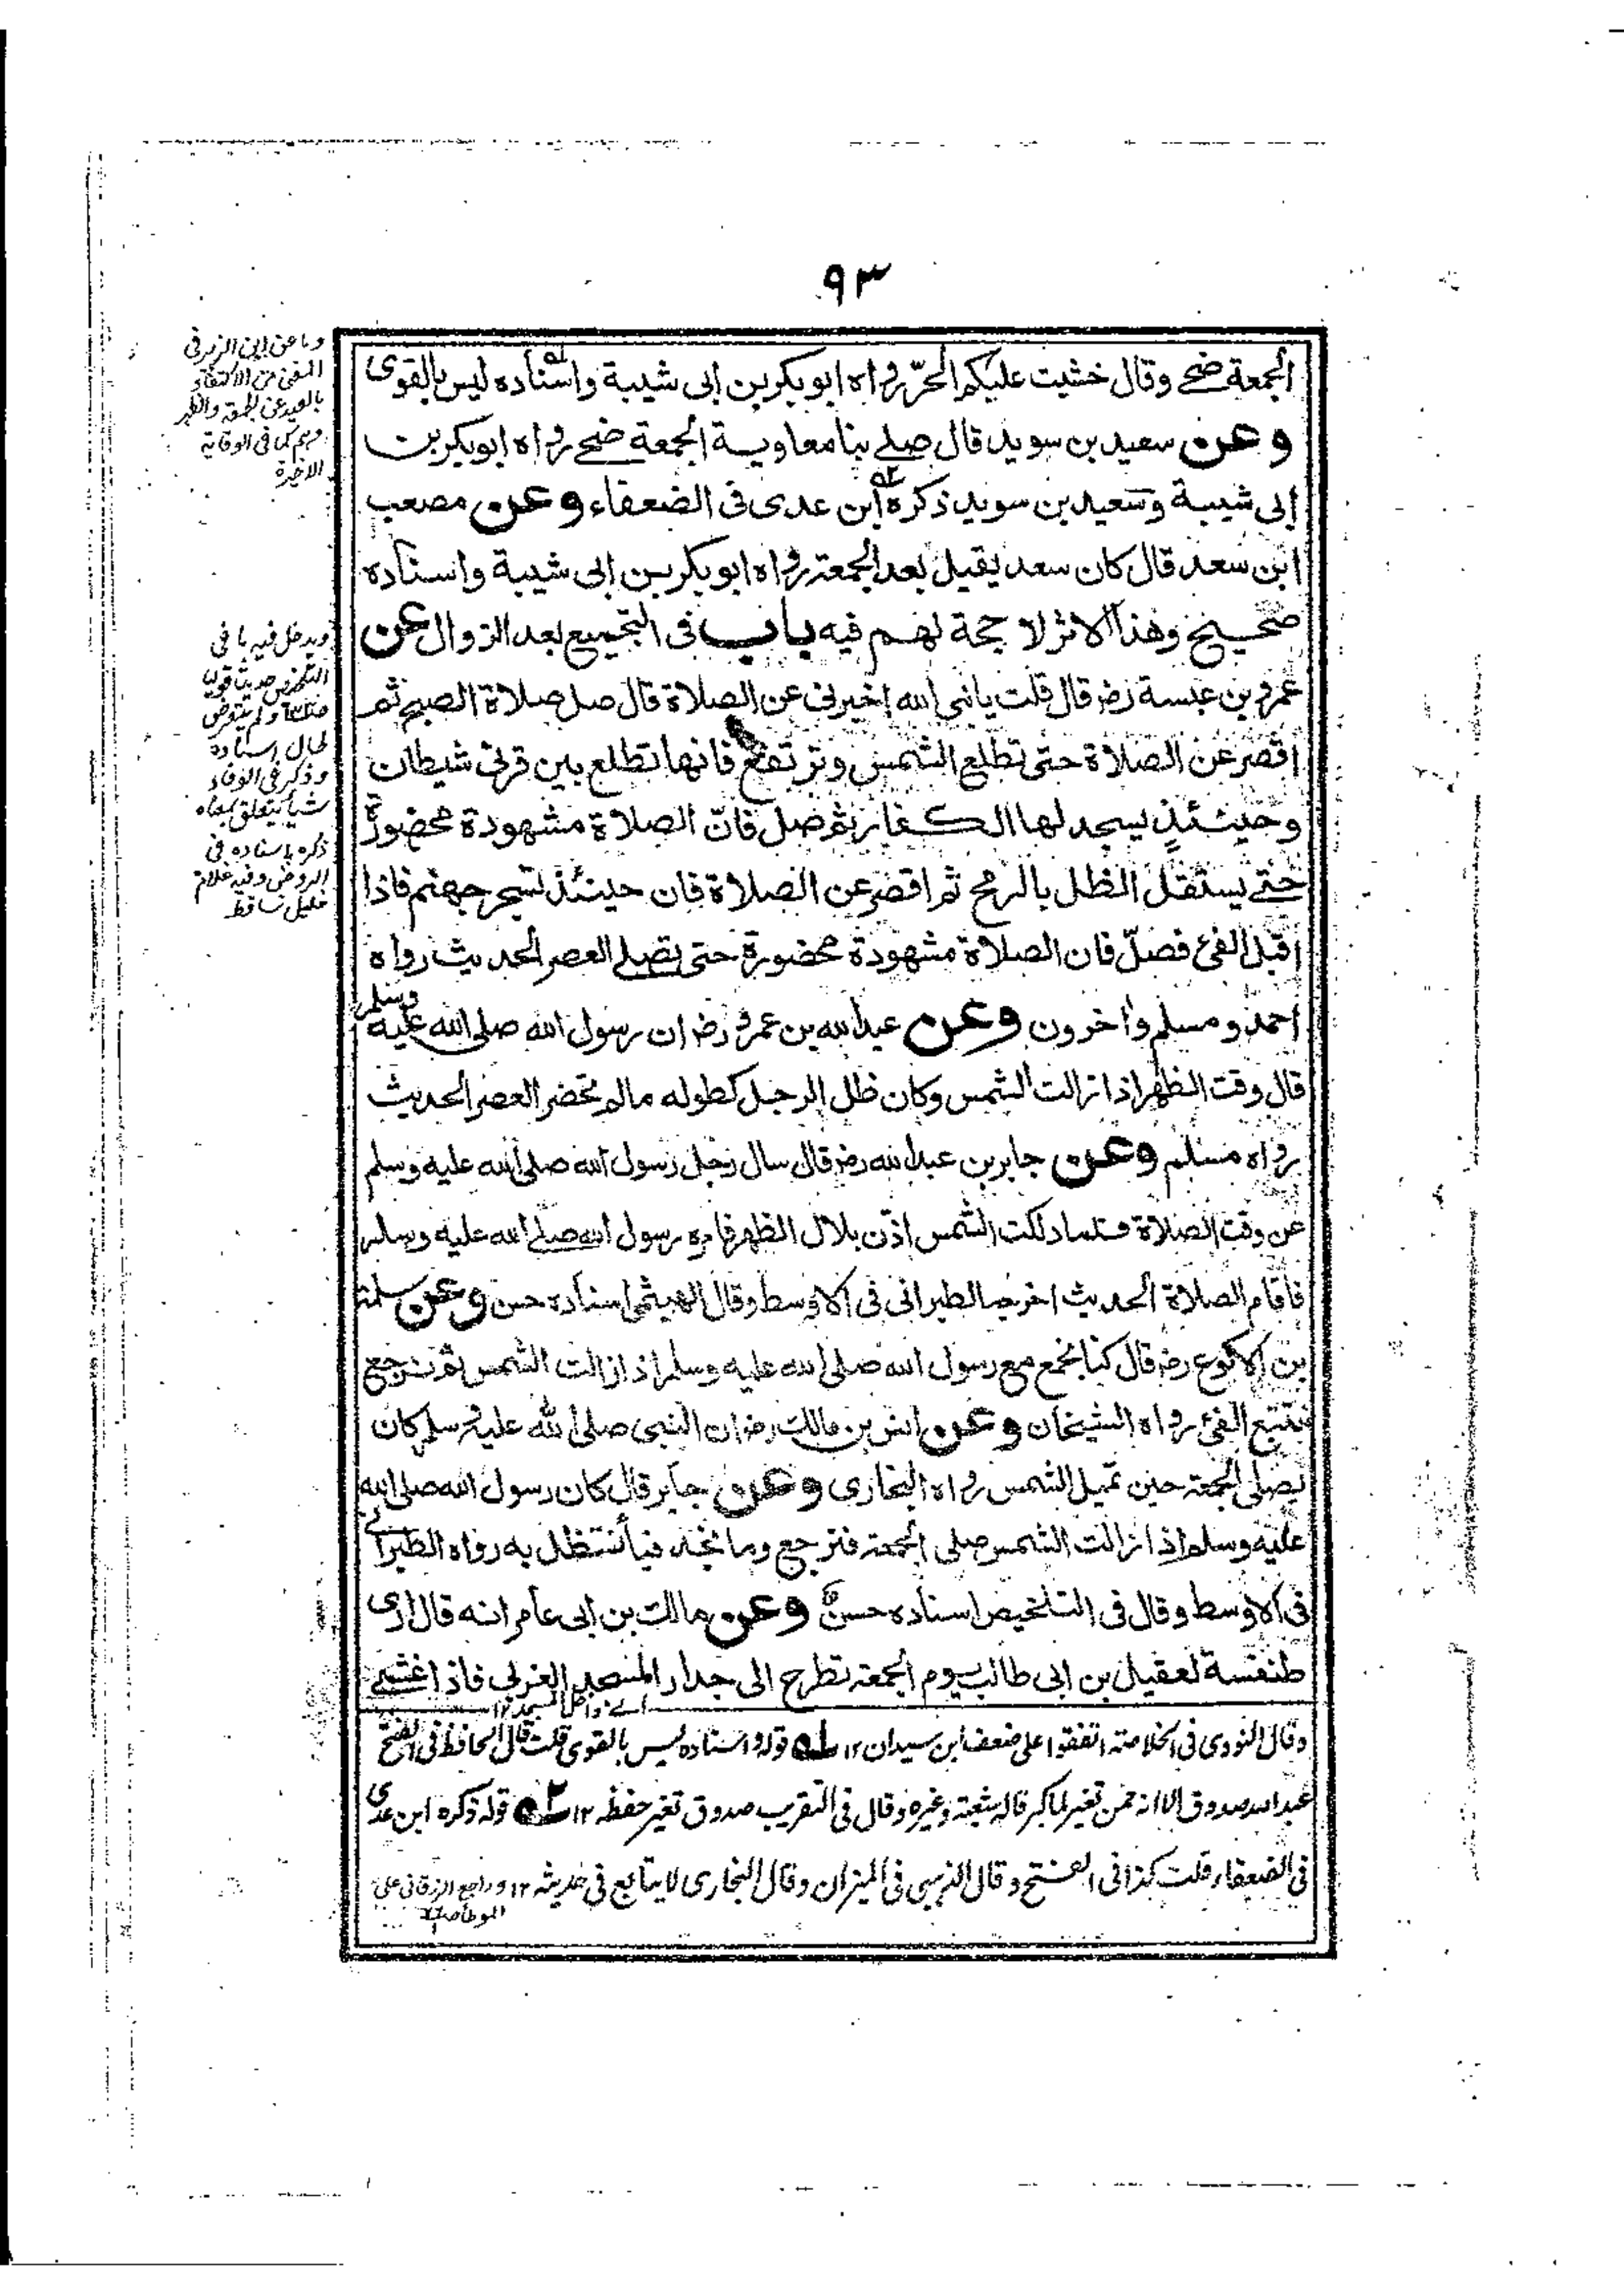 ٩٣
الجمعة ضحى وقال خشيت عليكم الحرّ رواه ابوبكر بن ابى شيبة واسناده ليس بالقوى
وعن سعيد بن سويد قال صلى بنا معاوية الجمعة ضحى رواه ابوبكر بن
ابى شيبة وسعيد بن سويد ذكره ابن عدى فى الضعفاء وعن مصعب
ابن سعد قال كان سعد يقيل بعد الجمعة رواه ابوبكر بن ابى شيبة واسناده
صحيح وهذا الاثر لا حجة لهم فيه باب فى التجميع بعد الزوال عن
عمرو بن عبسة رضـ قال قلت يا نبى الله اخبرنى عن الصلاة قال صل صلاة الصبح ثم
اقصر عن الصلاة حتى تطلع الشمس وترتفع فانها تطلع بين قرنى شيطان
وحينئذٍ يسجد لها الكفار ثم صل فانّ الصلاة مشهودة محضورة
حتى يستقل الظل بالرمح ثم اقصر عن الصلاة فان حينئذ تسجر جهنم فاذا
اقبل الفئ فصلّ فان الصلاة مشهودة محضورة حتى تصلى العصر الحديث رواه
احمد ومسلم واخرون وعن عبد الله بن عمرو رضـ ان رسول الله صلى الله عليه وسلم
قال وقت الظهر اذا زالت الشمس وكان ظل الرجل كطوله مالم تحضر العصر الحديث
رواه مسلم وعن جابر بن عبد الله رضـ قال سال رجل رسول الله صلى الله عليه وسلم
عن وقت الصلاة فلما دلكت الشمس اذّن بلال الظهر فامره رسول الله صلى الله عليه وسلم
فاقام الصلاة الحديث اخرجه الطبرانى فى الاوسط وقال الهيثمى اسناده حسن وعن سلمة
بن الاكوع رضـ قال كنا نجمع مع رسول الله صلى الله عليه وسلم اذا زالت الشمس ثم نرجع
نتتبع الفئ رواه الشيخان وعن انس بن مالك رضـ ان النبى صلى الله عليه وسلم كان
يصلى الجمعة حين تميل الشمس رواه البخارى وعن جابر قال كان رسول الله صلى الله
عليه وسلم اذا زالت الشمس صلى الجمعة فنرجع وما نجد فيأ نستظل به رواه الطبرانى
فى الاوسط وقال فى التلخيص اسناده حسن وعن مالك بن ابى عامر انه قال ارى
طنفسة لعقيل بن ابى طالب يوم الجمعة تطرح الى جدار المسجد الغربى فاذا غشى
اے داخل المسجد ١٢
وقال النووى فى الخلاصة اتفقوا على ضعف ابن سيدان ١٢ ١ه قوله واسناده ليس بالقوى قلت قال الحافظ فى الفتح
عبد الله صدوق الا انه ممن تغير لما كبر قاله شعبة وغيره وقال فى التقريب صدوق تغير حفظه ١٢ ٢ه قوله ذكره ابن عدى
فى الضعفاء قلت كذا فى الفتح وقال الذهبى فى الميزان وقال البخارى لا يتابع فى حديثه ١٢ وراجع الزرقانى على
الموطأ
وما عن ابن الزبير فى
المغنى من الاكتفاء
بالعيد عن الجمعة والظهر
الاخرة
ويدخل فيه ما فى
التلخيص حديثا قوليا
ولم يتعرض
لحال اسناده
وذكر فى الوفاء
شيأ يتعلق بمعناه
ذكره باسناده فى
الروض وفيه غلام
خليل ساقط